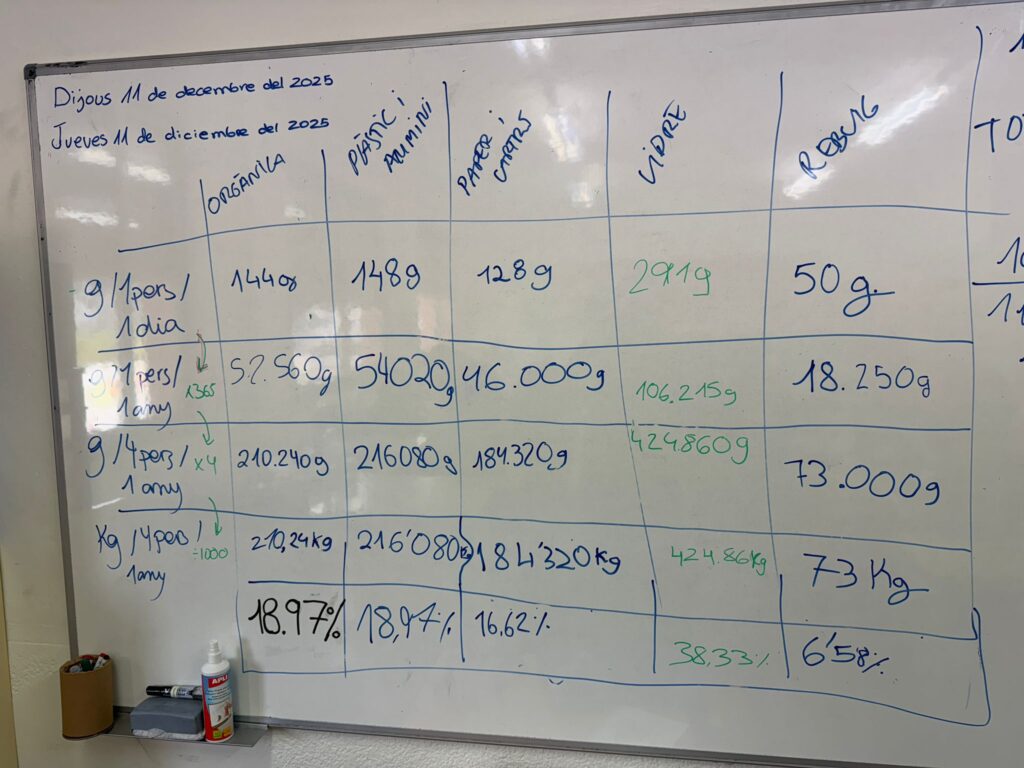 Dijous 11 de decembre del 2025
Jueves 11 de diciembre del 2025
ORGÀNICA
PLÀSTIC i ALUMINI
PAPER i CARTRS
VIDRE
REBUIG
TO
g/1pers/ 1 dia
144g
148g
128g
291g
50g
g/1pers/ 1 any
x365
52.560g
54020g
46.000g
106.215g
18.250g
g/4pers/ 1 any
x4
210.240g
216080g
184.320g
424.860g
73.000g
Kg/4pers/ 1any
÷1000
210,24kg
216'080kg
184'320Kg
424.86Kg
73 Kg
18.97%
18,97%
16.62%
38.33%
6'58%
APLI